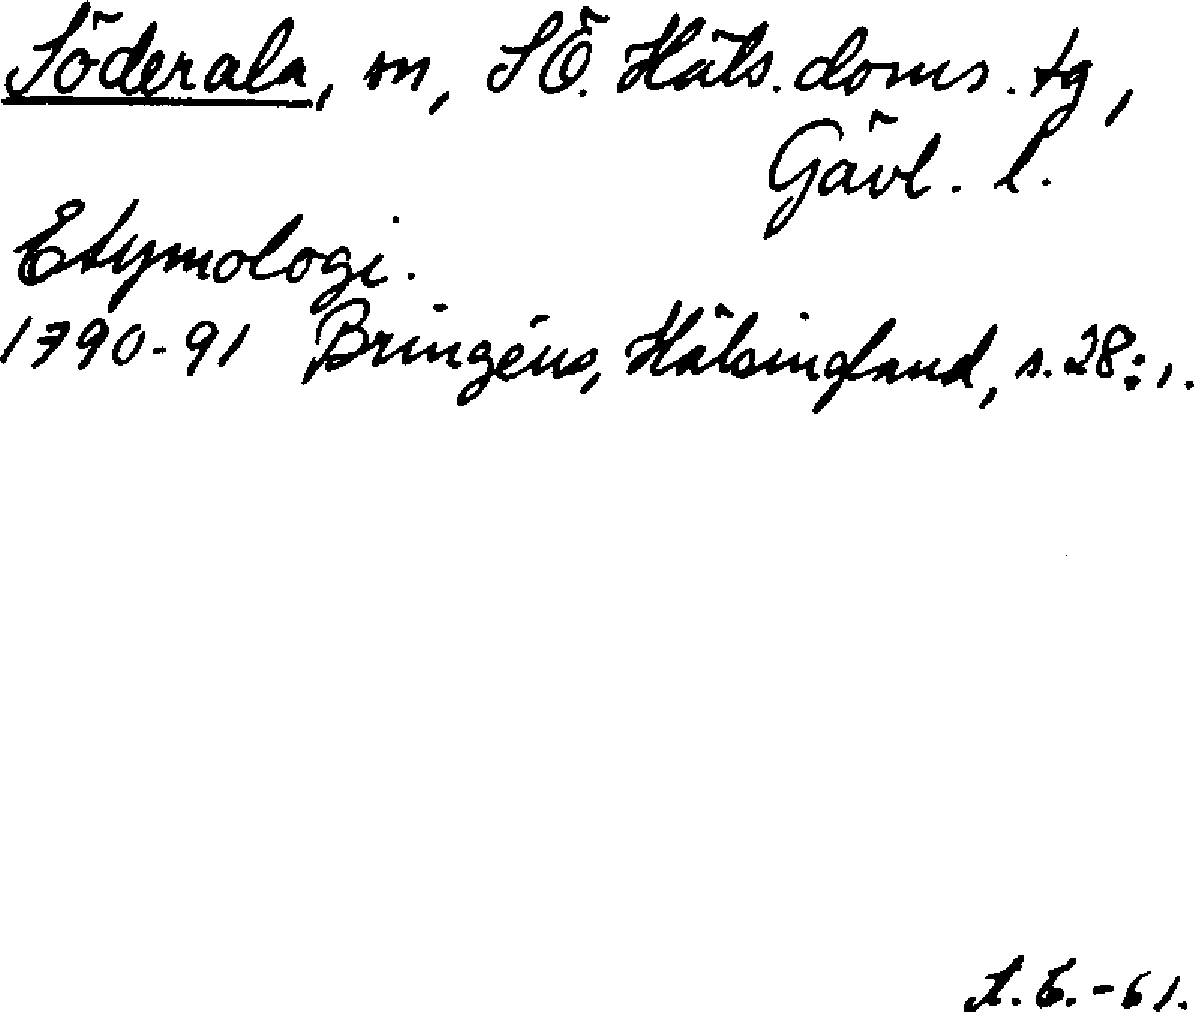 Söderala, m, SÖ. Häls. doms. tg,
Gävl. l.
Etymologi.
1790-91 Bringéus, Hälsingland, s. 28:1.
A.E.-61.